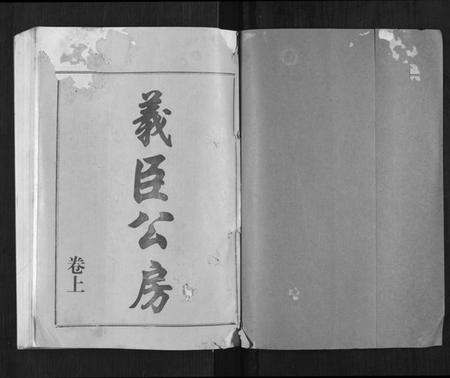 義臣公房
卷上